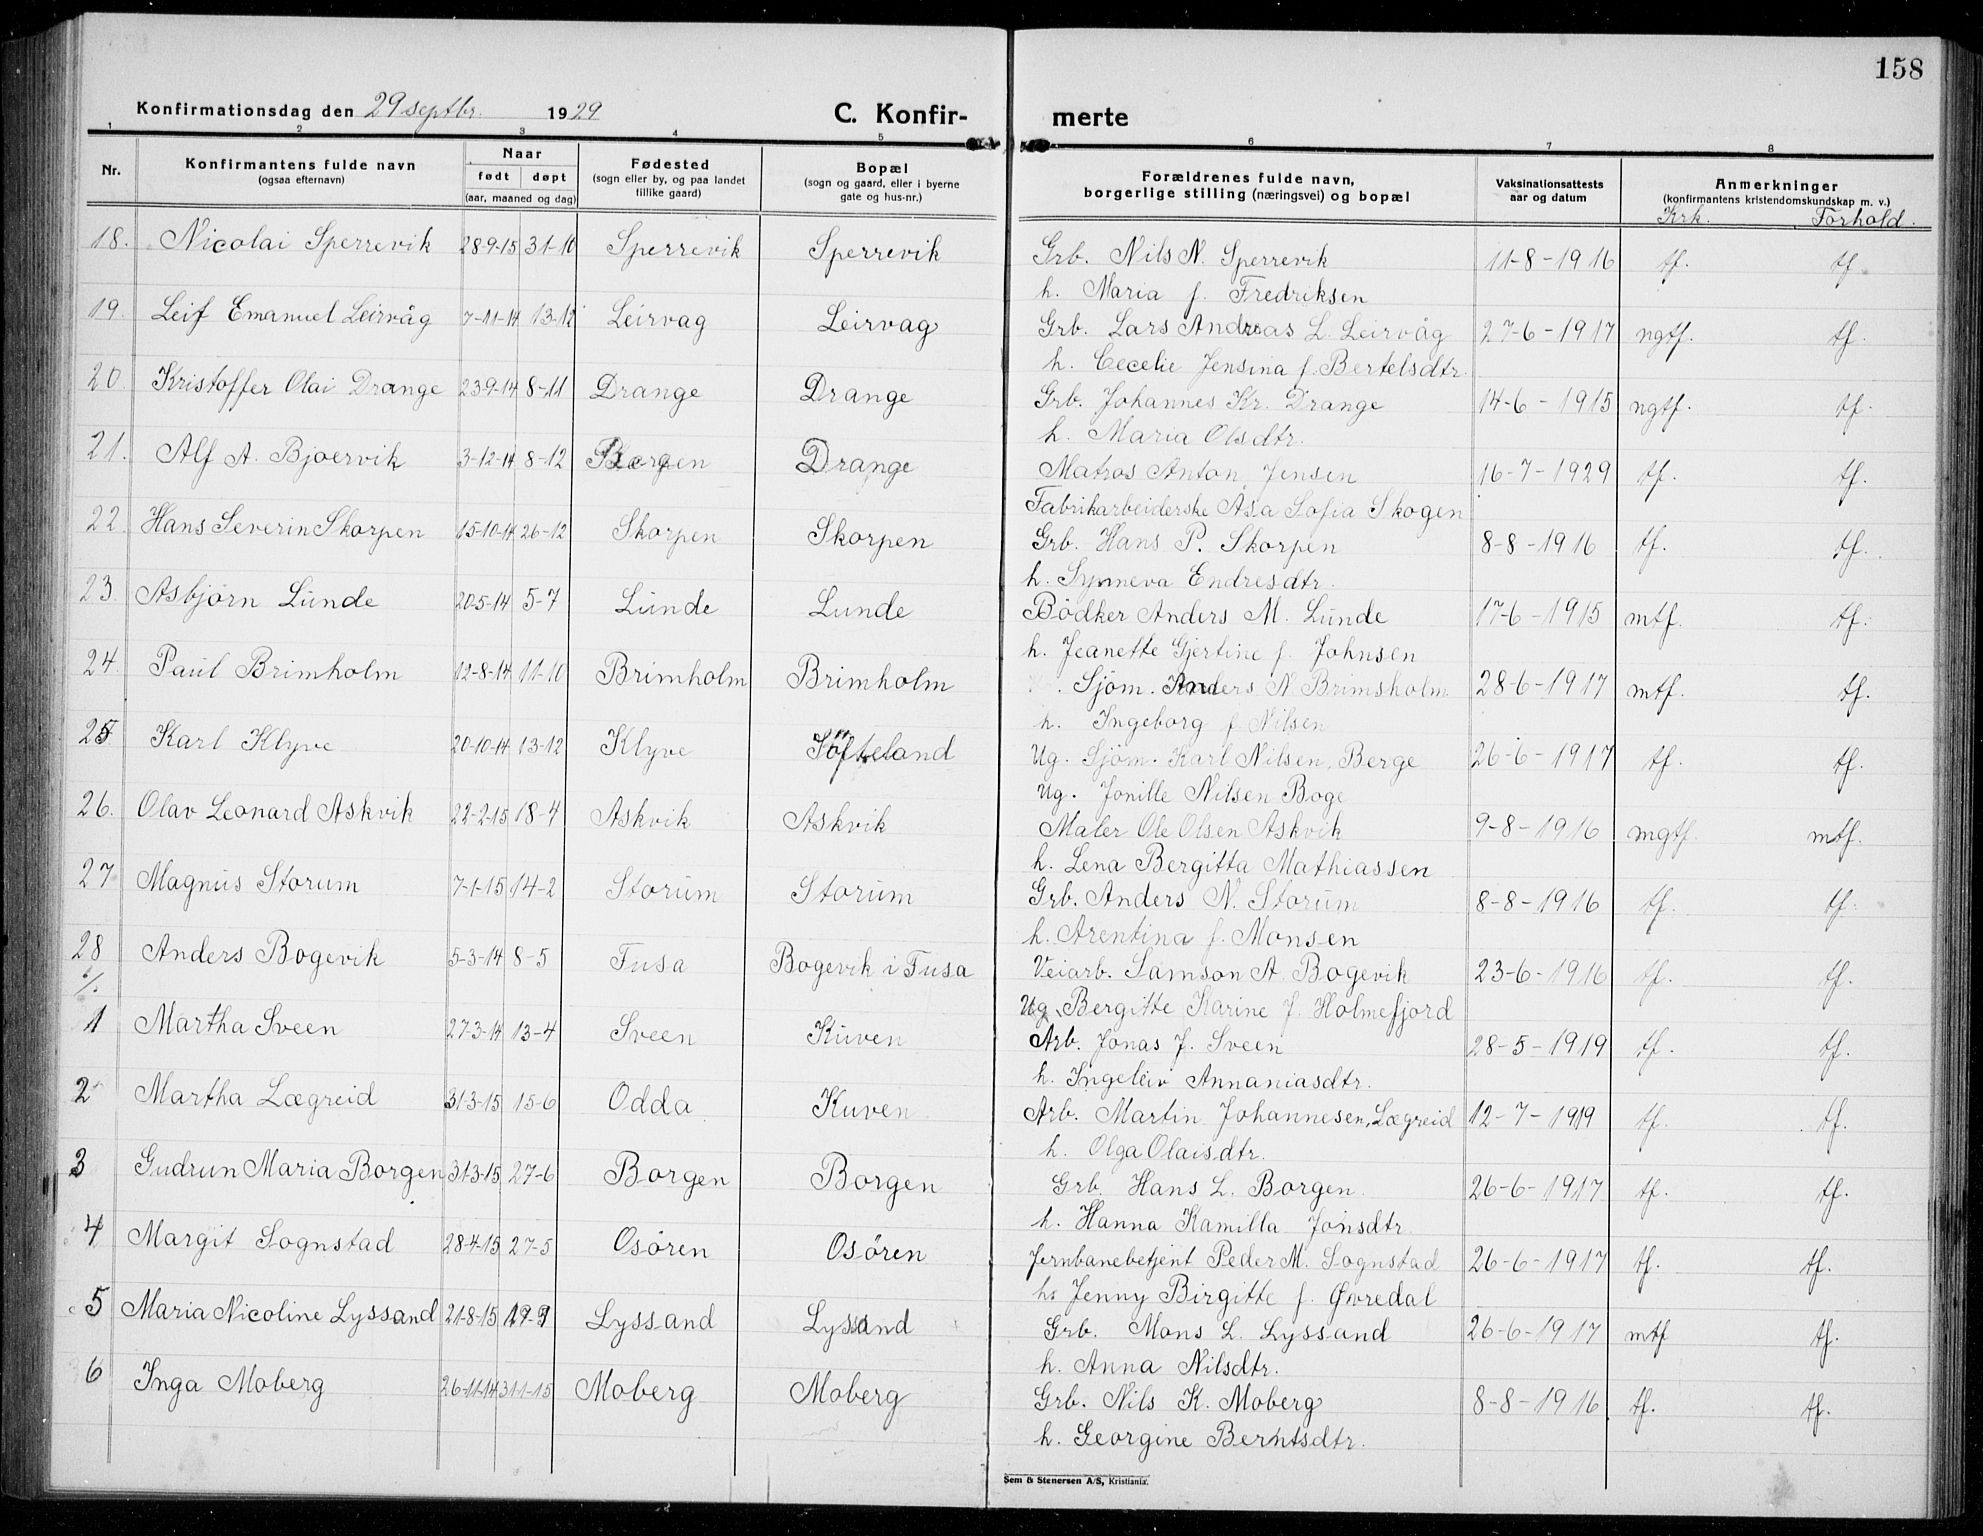 158
Konfirmationsdag den 29 septbr. 1929 C. Konfir- merte
1 2 3 4 5 6 7 8
Nr. Konfirmantens fulde navn (ogsaa efternavn) Naar født døpt (aar, maaned og dag) Fødested (sogn eller by, og paa landet tillike gaard) Bopæl (sogn og gaard, eller i byerne gate og hus-nr.) Forældrenes fulde navn, borgerlige stilling (næringsvei) og bopæl Vaksinationsattests aar og datum Anmerkninger (konfirmantens kristendomskundskap m. v.)
Krk. Forhold.
18. Nicolai Sperrevik 28-9-15 31-10 Sperrevik Sperrevik Grb. Nils N. Sperrevik 11-8-1916 tf. tf.
h. Maria f. Fredriksen
19. Leif Emanuel Leirvåg 7-11-14 13-12 Leirvag Leirvag Grb. Lars Andreas L. Leirvåg 27-6-1917 ngtf. tf.
h. Cecelie Jensina f. Bertelsdtr.
20. Kristoffer Olai Drange 23-9-14 8-11 Drange Drange Grb. Johannes Kr. Drange 14-6-1915 ngtf. tf.
h. Maria Olsdtr.
21. Alf A. Bjoervik 3-12-14 8-12 Bergen Drange Matros Anton Jensen 16-7-1929 tf. tf.
Fabrikarbeiderske Åsa Sofia Skogen
22. Hans Severin Skorpen 15-10-14 26-12 Skorpen Skorpen Grb. Hans P. Skorpen 8-8-1916 tf. tf.
h. Synneva Endresdtr.
23. Asbjørn Lunde 20-5-14 5-7 Lunde Lunde Bødker Anders M. Lunde 17-6-1915 mtf. tf.
h. Jeanette Gjertine f. Johnsen
24. Paul Brimholm 12-8-14 11-10 Brimholm Brimholm Sjöm. Anders N. Brimsholm 28-6-1917 mtf. tf.
h. Ingeborg f Nilsen
25 Karl Klyve 20-10-14 13-12 Klyve Söfteland Ug. Sjöm. Karl Nilsen, Berge 26-6-1917 tf. tf.
Ug. Jonille Nilsen Boge
26. Olav Leonard Askvik 22-2-15 18-4 Askvik Askvik Maler Ole Olsen Askvik 9-8-1916 mgtf. mtf.
h. Lena Bergitta Mathiassen
27 Magnus Storum 7-1-15 14-2 Storum Storum Grb. Anders N. Storum 8-8-1916 tf. tf.
h. Arentina f. Monsen
28 Anders Bogevik 5-3-14 8-5 Fusa Bogevik i Fusa Veiarb. Samson A. Bogevik 23-6-1916 tf. tf.
Ug. Bergitte Karine J. Holmefjord
1 Martha Sveen 27-3-14 13-4 Sveen Kuven Arb. Jonas J. Sveen 28-5-1919 tf. tf.
h. Ingeleiv Annaniasdtr.
2 Martha Lægreid 31-3-15 15-6 Odda Kuven Arb. Martin Johannesen, Lægreid 12-7-1919 tf. tf.
h. Olga Olaisdtr.
3 Gudrun Maria Borgen 31-3-15 27-6 Borgen Borgen Grb. Hans L. Borgen 26-6-1917 tf. tf.
h. Hanna Kamilla Jonsdtr.
4 Margit Sognstad 28-4-15 27-5 Osören Osören Jernbanebetjent Peder M. Sognstad 26-6-1917 tf. tf.
h. Jenny Birgitte f. Øvredal
5 Maria Nicoline Lyssand 21-8-15 19-9 Lyssand Lyssand Grb. Mons L. Lyssand 26-6-1917 mtf tf.
h. Anna Nilsdtr.
6 Inga Moberg 26-11-14 31-1-15 Moberg Moberg Grb. Nils K. Moberg 8-8-1916 tf. tf.
h. Georgine Berntsdtr.
Sem & Stenersen A/S, Kristiania.